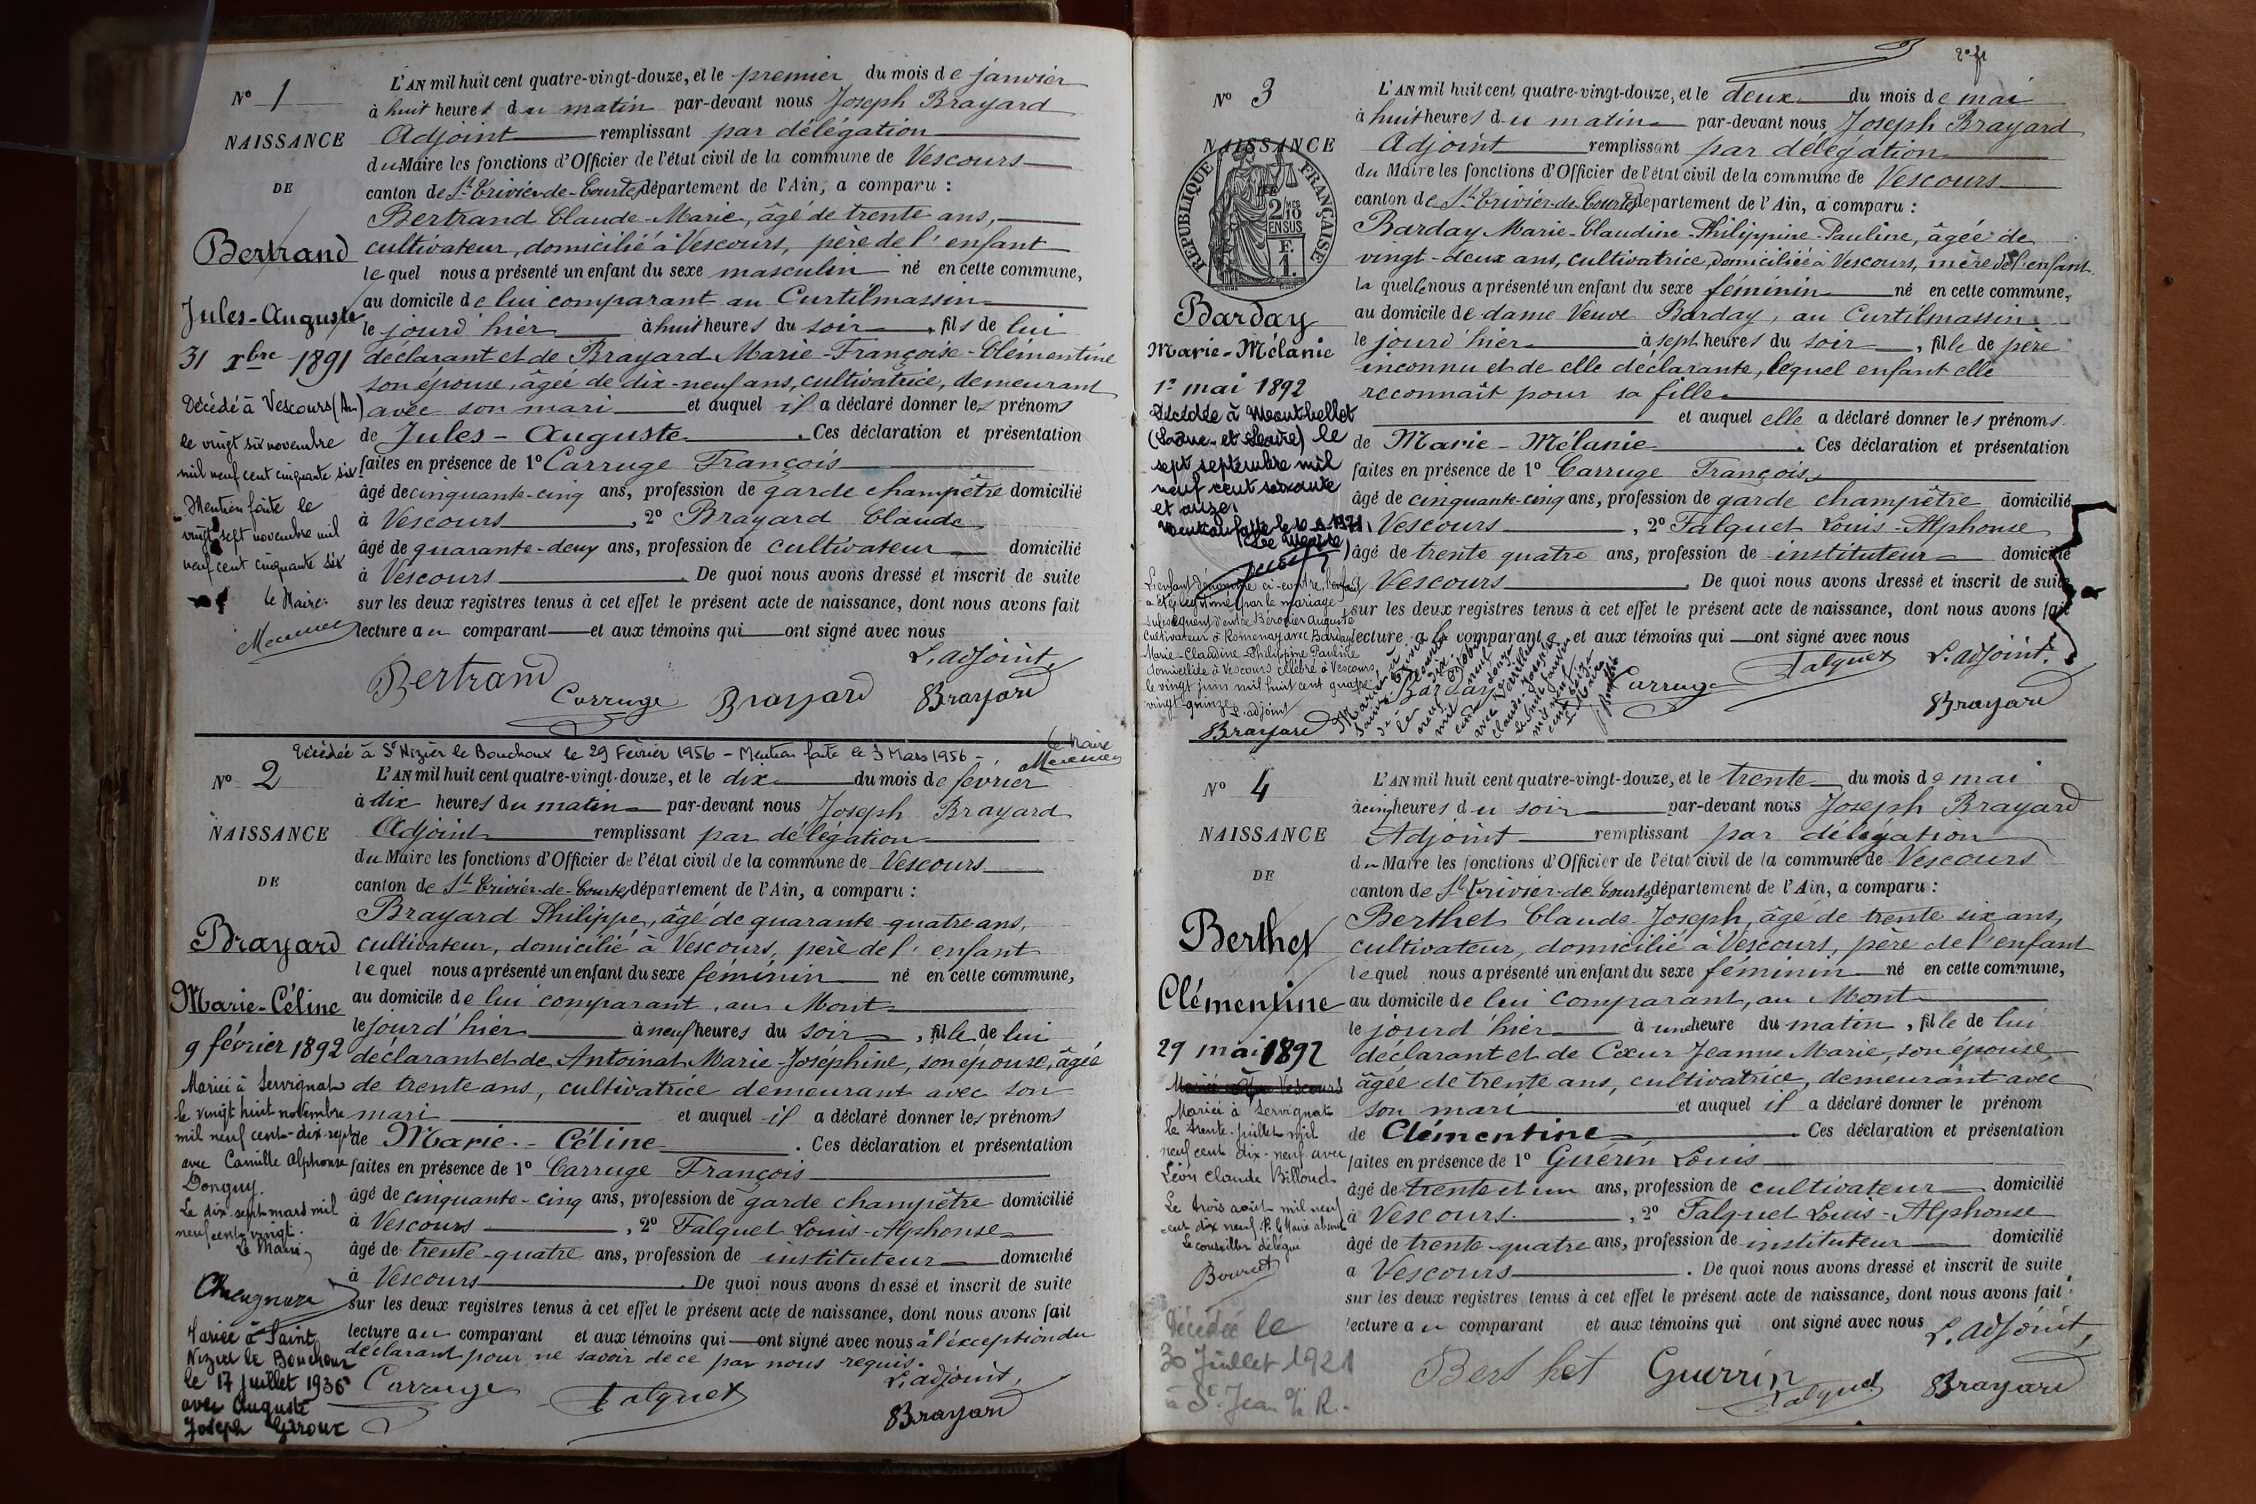 N° 1
NAISSANCE
DE
Bertrand
Jules-Auguste
31 Xbre 1891
Décédé à Vescours (Ain)
le vingt six novembre
mil neuf cent cinquante six
Mention faite le
vingt sept novembre mil
neuf cent cinquante six
le Maire
L'AN mil huit cent quatre-vingt-douze, et le premier du mois de janvier
à huit heures du matin par-devant nous Joseph Brayard
Adjoint remplissant par délégation
du Maire les fonctions d'Officier de l'état civil de la commune de Vescours
canton de St Trivier-de-Courtes département de l'Ain, a comparu :
Bertrand Claude-Marie, âgé de trente ans,
cultivateur, domicilié à Vescours, père de l'enfant
lequel nous a présenté un enfant du sexe masculin né en cette commune,
au domicile de lui comparant au Curtilmassin
le jourd'hier à huit heures du soir, fils de lui
déclarant et de Brayard Marie-Françoise-Clémentine
son épouse, âgée de dix-neuf ans, cultivatrice, demeurant
avec son mari et auquel il a déclaré donner les prénoms
de Jules-Auguste. Ces déclaration et présentation
faites en présence de 1° Carruge François
âgé de cinquante-cinq ans, profession de garde champêtre domicilié
à Vescours, 2° Brayard Claude
âgé de quarante-deux ans, profession de cultivateur domicilié
à Vescours. De quoi nous avons dressé et inscrit de suite
sur les deux registres tenus à cet effet le présent acte de naissance, dont nous avons fait
lecture au comparant et aux témoins qui ont signé avec nous
L'adjoint,
Bertrand Carruge Brayard Brayard
Décédée à St Nizier le Bouchoux le 29 Février 1956 - Mention faite le 3 Mars 1956 -
le Maire
N° 2
NAISSANCE
DE
Brayard
Marie-Céline
9 février 1892
Mariée à Servignat
le vingt huit novembre
mil neuf cent-dix-sept
avec Camille Alphonse
Donguy.
Le dix sept mars mil
neuf cent vingt.
Le Maire
Mariée à Saint
Nizier le Bouchoux
le 17 juillet 1936
avec Auguste
Joseph Giroux
L'AN mil huit cent quatre-vingt-douze, et le dix du mois de février
à dix heures du matin par-devant nous Joseph Brayard
Adjoint remplissant par délégation
du Maire les fonctions d'Officier de l'état civil de la commune de Vescours
canton de St Trivier-de-Courtes département de l'Ain, a comparu :
Brayard Philippe, âgé de quarante-quatre ans,
cultivateur, domicilié à Vescours, père de l'enfant
lequel nous a présenté un enfant du sexe féminin né en cette commune,
au domicile de lui comparant, au Mont
le jourd'hier à neuf heures du soir, fille de lui
déclarant et de Antoinat Marie-Joséphine, son épouse, âgée
de trente ans, cultivatrice demeurant avec son
mari et auquel il a déclaré donner les prénoms
de Marie-Céline. Ces déclaration et présentation
faites en présence de 1° Carruge François
âgé de cinquante-cinq ans, profession de garde champêtre domicilié
à Vescours, 2° Falquet Louis-Alphonse
âgé de trente-quatre ans, profession de instituteur domicilié
à Vescours. De quoi nous avons dressé et inscrit de suite
sur les deux registres tenus à cet effet le présent acte de naissance, dont nous avons fait
lecture au comparant et aux témoins qui ont signé avec nous à l'exception du
déclarant pour ne savoir de ce par nous requis.
L'adjoint,
Carruge Falquet Brayard
N° 3
NAISSANCE
REPUBLIQUE FRANÇAISE
2/10 EN SUS
F. 1.
Barday
Marie-Mélanie
1er mai 1892
Décédée à Montbellet
(Saône-et-Loire) le
sept septembre mil
neuf cent soixante
et onze.
L'enfant dénommé ci-contre
a été légitimé par le mariage
subséquent d'entre Béroder Auguste
cultivateur à Romenay avec Barday
Marie-Claudine-Philippine Pauline
domiciliée à Vescours célébré à Vescours
le vingt juin mil huit cent quatre
vingt-quinze L'adjoint
Brayard
L'AN mil huit cent quatre-vingt-douze, et le deux du mois de mai
à huit heures du matin par-devant nous Joseph Brayard
Adjoint remplissant par délégation
du Maire les fonctions d'Officier de l'état civil de la commune de Vescours
canton de St Trivier-de-Courtes département de l'Ain, a comparu :
Barday Marie-Claudine-Philippine-Pauline, âgée de
vingt-deux ans, cultivatrice, domiciliée à Vescours, mère de l'enfant
laquelle nous a présenté un enfant du sexe féminin né en cette commune,
au domicile de dame Veuve Barday, au Curtilmassin
le jourd'hier à sept heures du soir, fille de père
inconnu et de elle déclarante, lequel enfant elle
reconnaît pour sa fille
et auquel elle a déclaré donner les prénoms
de Marie-Mélanie. Ces déclaration et présentation
faites en présence de 1° Carruge François,
âgé de cinquante-cinq ans, profession de garde champêtre domicilié
Vescours, 2° Falquet Louis-Alphonse
âgé de trente quatre ans, profession de instituteur domicilié
Vescours. De quoi nous avons dressé et inscrit de suite
sur les deux registres tenus à cet effet le présent acte de naissance, dont nous avons fait
lecture à la comparante et aux témoins qui ont signé avec nous
L'adjoint.
Barday Carruge Falquet Brayard
N° 4
NAISSANCE
DE
Berthet
Clémentine
29 mai 1892
Mariée à Servignat
le trente juillet mil
neuf cent dix-neuf avec
Léon Claude Billoud
Le trois août mil neuf
cent dix neuf P. le Maire absent
Le conseiller délégué
Bouvet
Décédée le
30 Juillet 1921
à St Jean s/ R.
L'AN mil huit cent quatre-vingt-douze, et le trente du mois de mai
à cinq heures du soir par-devant nous Joseph Brayard
Adjoint remplissant par délégation
du Maire les fonctions d'Officier de l'état civil de la commune de Vescours
canton de St Trivier-de-Courtes département de l'Ain, a comparu :
Berthet Claude Joseph, âgé de trente six ans,
cultivateur, domicilié à Vescours, père de l'enfant
lequel nous a présenté un enfant du sexe féminin né en cette commune,
au domicile de lui comparant, au Mont
le jourd'hier à une heure du matin, fille de lui
déclarant et de Cœur Jeanne Marie, son épouse
âgée de trente ans, cultivatrice, demeurant avec
son mari et auquel il a déclaré donner le prénom
de Clémentine. Ces déclaration et présentation
faites en présence de 1° Guérin Louis
âgé de trente et un ans, profession de cultivateur domicilié
à Vescours, 2° Falquet Louis-Alphonse
âgé de trente-quatre ans, profession de instituteur domicilié
à Vescours. De quoi nous avons dressé et inscrit de suite
sur les deux registres tenus à cet effet le présent acte de naissance, dont nous avons fait
lecture au comparant et aux témoins qui ont signé avec nous
L'adjoint,
Berthet Guerrin Falquet Brayard